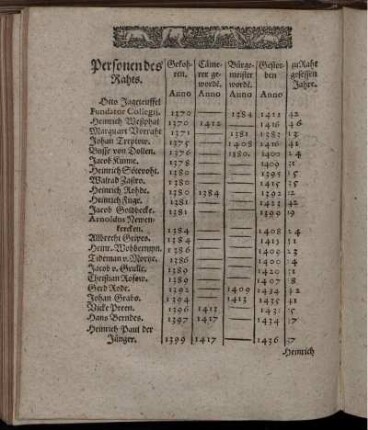 Personen des Rahts. | Gekohren. | Cämerer gewordt. | Bürgemeister wordt. | Gestorben | zu Raht gesessen Jahre.
Anno Anno Anno Anno
Otto Jageteuffel
Fundator Collegij. 1370 — 1384 1412 42
Heinrich Westphal 1370 1412 — 1416 46
Marquart Vorraht 1371 — 1381 1382
Johan Treptow. 1375 — 1408 1416 41
Busse von Dollen. 1376 — 1380. 1400 24
Jacob Kunne. 1378 — — 1409 31
Heinrich 1380 — — 1395 15
1380 — — 1415 35
Heinrich Rohde. 1380 1384 — 1392 12
Heinrich Fuge. 1381 — — 1423 42
Jacob Goltbecke. 1381 — — 1399 19
Arnoldus Newenkercken.
1384 — — 1408 24
Albrecht 1384 — — 1413
Heinr. Wobbermyn. 1386 — — 1409 23
Tideman v. 1386 — — 1400
Jacob v. 1389 — — 1420 31
Christian 1389 — — 1407
Gerd Rode. 1392 — 1409 1434 42
Johan Grabo. 1394 — 1413 1435 41
Vicke Preen. 1396 1413 — 1431
Hans Berndes. 1397 1417 — 1434
Heinrich Paul der
Jünger. 1399 1417 — 1436
Heinrich